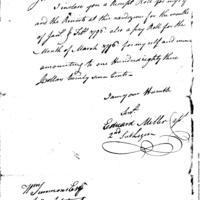 I inclose you a Receipt Roll for myself
and the Recruits at this rendezvous for the months
of Jany & Feby 1796 also a pay Roll for the
Month of March 1796 for myself and man
amounting to One Hundred eighty three
Dollars twenty seven Cents
I am your Humble
Servt
Edward Miller
Wm Simmons Esqr